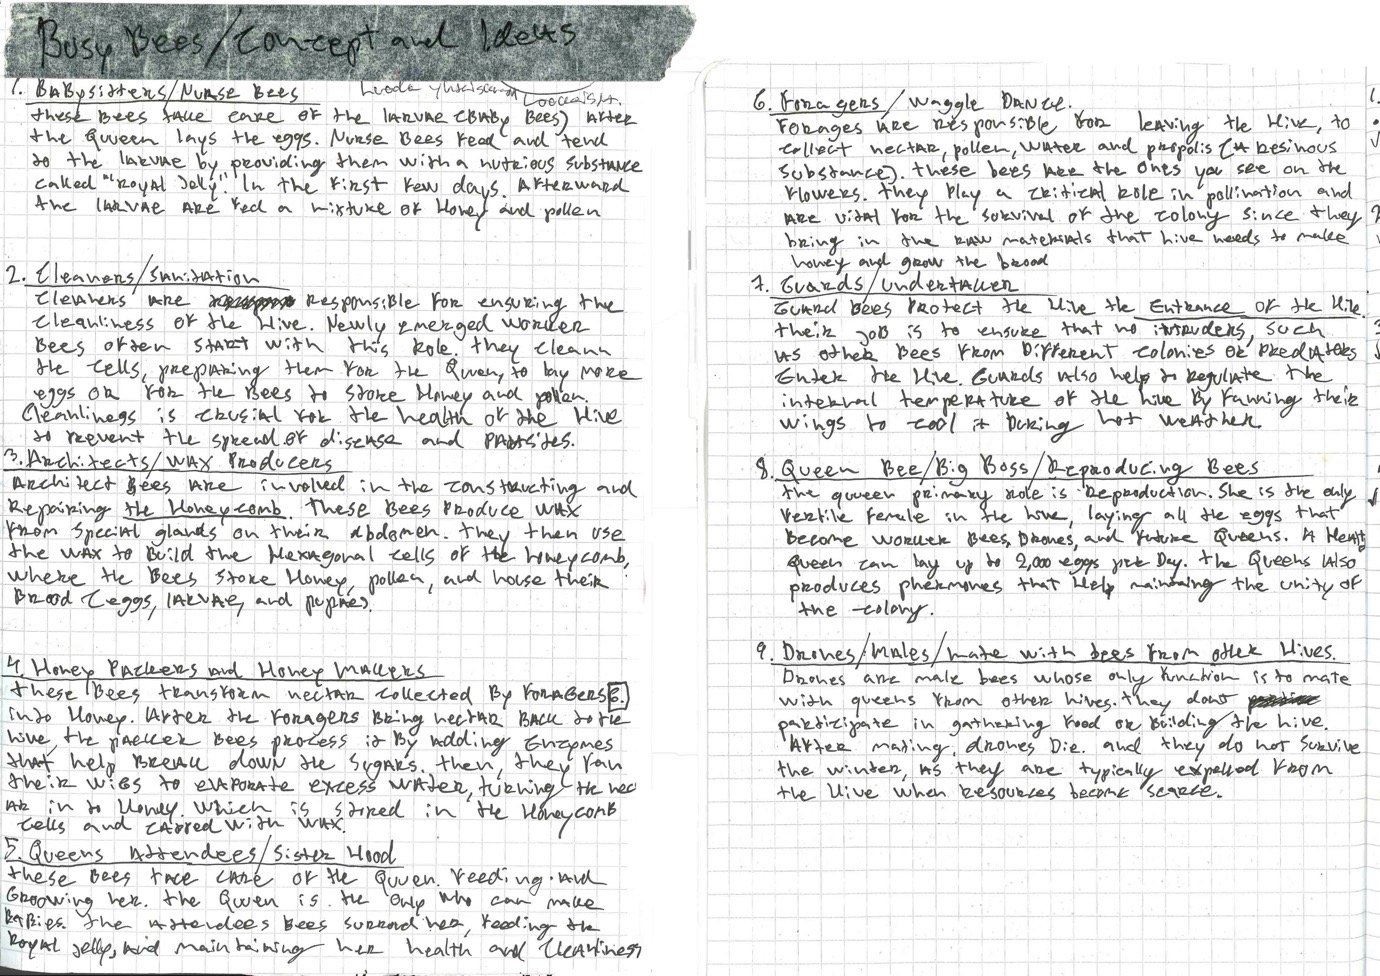 Busy Bees/Concept and Ideas
1. Babysitters/Nurse Bees
these Bees take care of the larvae (Baby Bees) After
the Queen lays the eggs. Nurse Bees feed and tend
to the larvae by providing them with a nutrious substance
called "Royal Jelly". In the first few days. Afterward
the larvae are fed a mixture of Honey and pollen
2. Cleaners/Sanitation
Cleaners are responsible for ensuring the
cleanliness of the Hive. Newly emerged worker
Bees often start with this role. they cleann
the cells, preparing them for the Queen, to lay more
eggs or for the Bees to store Honey and pollen.
Cleanliness is crusial for the health of the Hive
to prevent the spread of disease and parasites.
3. Architects/Wax Producers
Architect Bees are involved in the constructing and
Repairing the Honeycomb. These Bees produce wax
from special glands on their abdomen. they then use
the wax to build the Hexagonal cells of the honeycomb,
where the Bees store Honey, pollen, and house their
Brood (eggs, larvae, and pupae).
4. Honey Packers and Honey Makers
these Bees transform nectar collected By foragers 6.)
into Honey. After the foragers bring nectar back to the
hive, the packer Bees process it By adding Enzymes
that help Break down the sugars. then, they fan
their wigs to evaporate excess water, turning the nec
ar in to Honey. which is stored in the Honeycomb
cells and with wax.
5. Queens Attendees/Sister Hood
these Bees take care of the Queen. Feeding and
Groowing her. the Queen is the only who can make
Babies. the attendees Bees surround her, feeding the
Royal Jelly, and maintaining her health and cleanliness
6. Foragers/Waggle Dance.
Forages are responsible for leaving the Hive, to
collect nectar, pollen, water and propolis (A resinous
substance). these bees are the ones you see on the
flowers. they play a critical role in pollination and
are vital for the survival of the colony since they
bring in the raw materials that hive needs to make
honey and grow the brood
7. Guards/undertaker
Guard Bees protect the Hive the Entrance of the Hive.
their job is to ensure that no intruders, such
as other Bees from different colonies or predators
Enter the Hive. Guards also help to regulate the
internal temperature of the hive by fanning their
wings to cool it During hot weather.
8. Queen Bee/Big Boss/Reproducing Bees
the queen primary role is Reproduction. She is the only
fertile female in the hive, laying all the eggs that
become worker Bees, Drones, and future Queens. A Healt
Queen can lay up to 2,000 eggs per Day. the Queens Also
produces phermones that Help maintaining the unity of
the colony.
9. Drones/Males/mate with bees from other Hives.
Drones are male bees whose only function is to mate
with queens from other hives. they dont
participate in gathering food or Building the hive.
After mating, drones Die. and they do not survive
the winter, as they are typically expelled from
the Hive when resources become scarce.